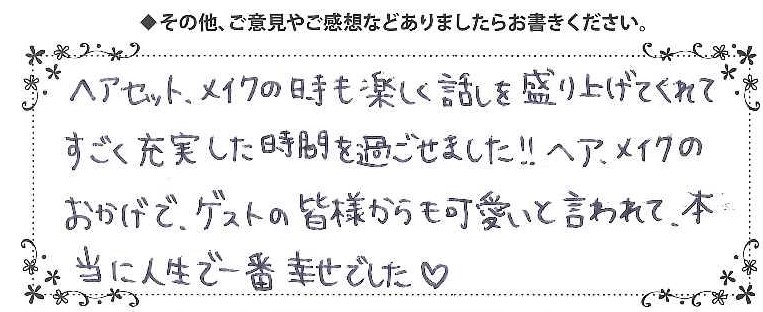 ◆その他、ご意見やご感想などありましたらお書きください。
ヘアセット、メイクの時も楽しく話しを盛り上げてくれて
すごく充実した時間を過ごせました!! ヘア、メイクの
おかげで、ゲストの皆様からも可愛いと言われて、本
当に人生で一番幸せでした♡